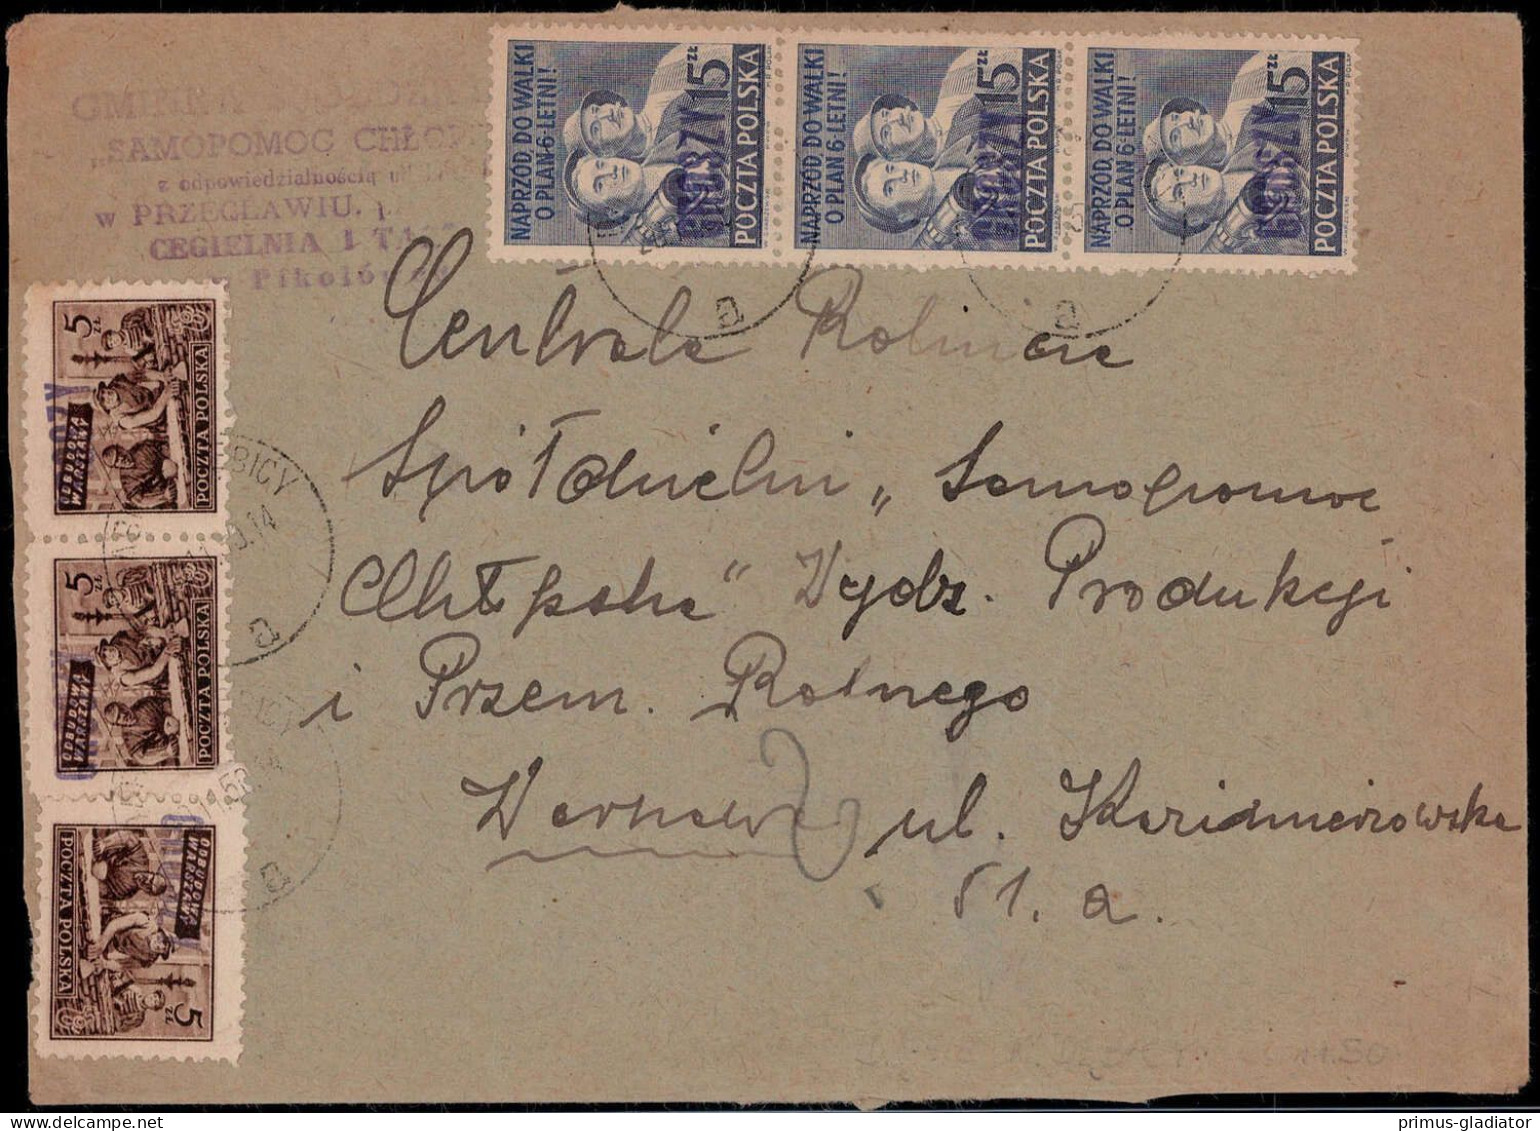 GMINNA
„SAMOPOMOC CHŁOP
z odpowiedzialnością
w PRZECŁAWIU,
CEGIELNIA I
NAPRZÓD DO WALKI
O PLAN 6-LETNI!
15 ZŁ
POCZTA POLSKA
GROSZY
NAPRZÓD DO WALKI
O PLAN 6-LETNI!
15 ZŁ
POCZTA POLSKA
GROSZY
NAPRZÓD DO WALKI
O PLAN 6-LETNI!
15 ZŁ
POCZTA POLSKA
GROSZY
a
a
5 ZŁ
ODBUDOWA
WARSZAWY
POCZTA POLSKA
5 ZŁ
ODBUDOWA
WARSZAWY
POCZTA POLSKA
5 ZŁ
ODBUDOWA
WARSZAWY
POCZTA POLSKA
BICY
a
a
Centrala Rolnicza
Spółdzielni „Samopomoc
Chłopska" Wydz. Produkcji
i Przem. Rolnego
Warszawa ul. Kazimierzowska
51. a.
primus-gladiator